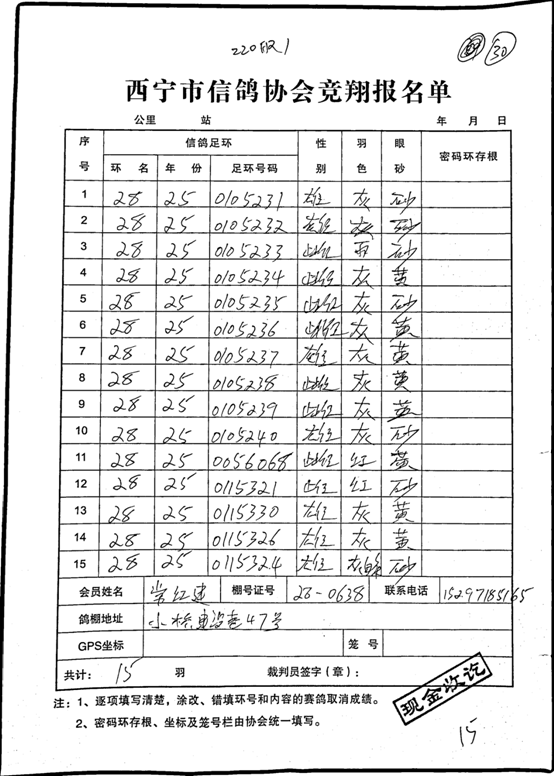 220取1
30
西宁市信鸽协会竞翔报名单
公里 站 年 月 日
序号 信鸽足环 性别 羽色 眼砂 密码环存根
环名 年份 足环号码
1 28 25 0105231 雄 灰 砂
2 28 25 0105232 雄 灰 砂
3 28 25 0105233 雌 砂
4 28 25 0105234 雌 灰 黄
5 28 25 0105235 雌 灰 砂
6 28 25 0105236 雌 灰 黄
7 28 25 0105237 雄 灰 黄
8 28 25 0105238 雌 灰 黄
9 28 25 0105239 雌 灰 黄
10 28 25 0105240 雄 灰 砂
11 28 25 0056068 雌 红 黄
12 28 25 0115321 雌 红 砂
13 28 25 0115330 雄 灰 黄
14 28 25 0115326 雄 灰 黄
15 28 25 0115324 雄 砂
会员姓名 常红建 棚号证号 28-0638 联系电话 15297185165
鸽棚地址 小桥建设巷47号
GPS坐标 笼号
共计: 15 羽 裁判员签字(章):
注:1、逐项填写清楚,涂改、错填环号和内容的赛鸽取消成绩。
2、密码环存根、坐标及笼号栏由协会统一填写。
现金收讫
15